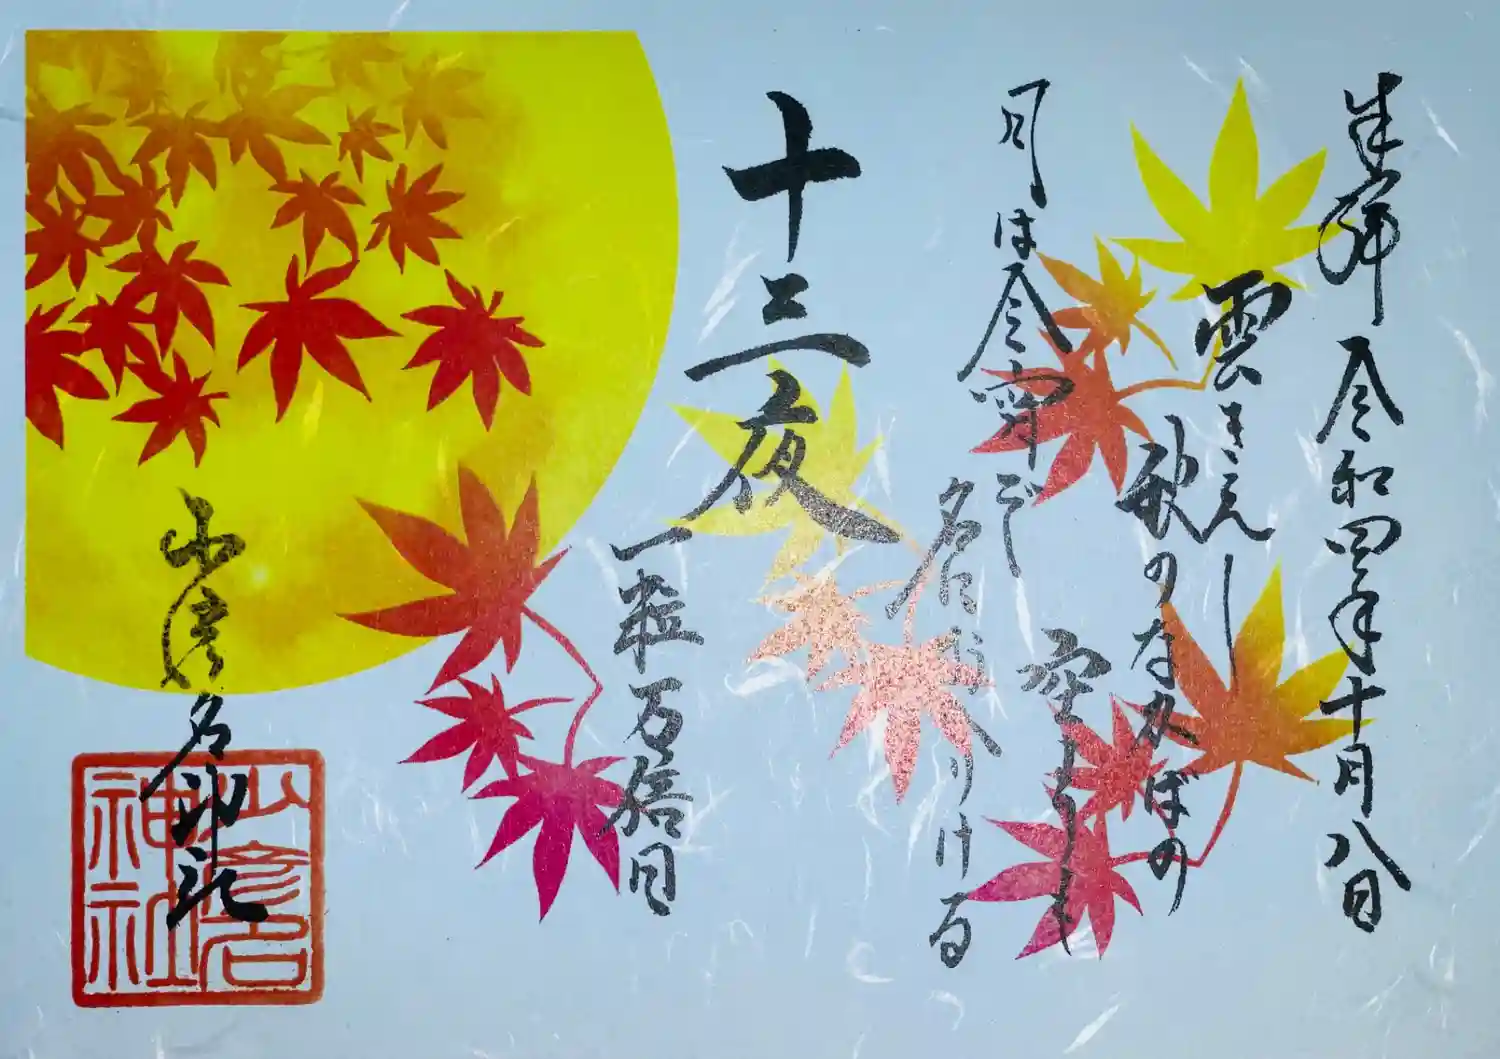 奉拝 令和四年十月八日
雲きえし
秋のなかばの
空よりも
月は今宵ぞ
名におへりける
十三夜
一粒万倍日
少彦名神社
少彦名
神社